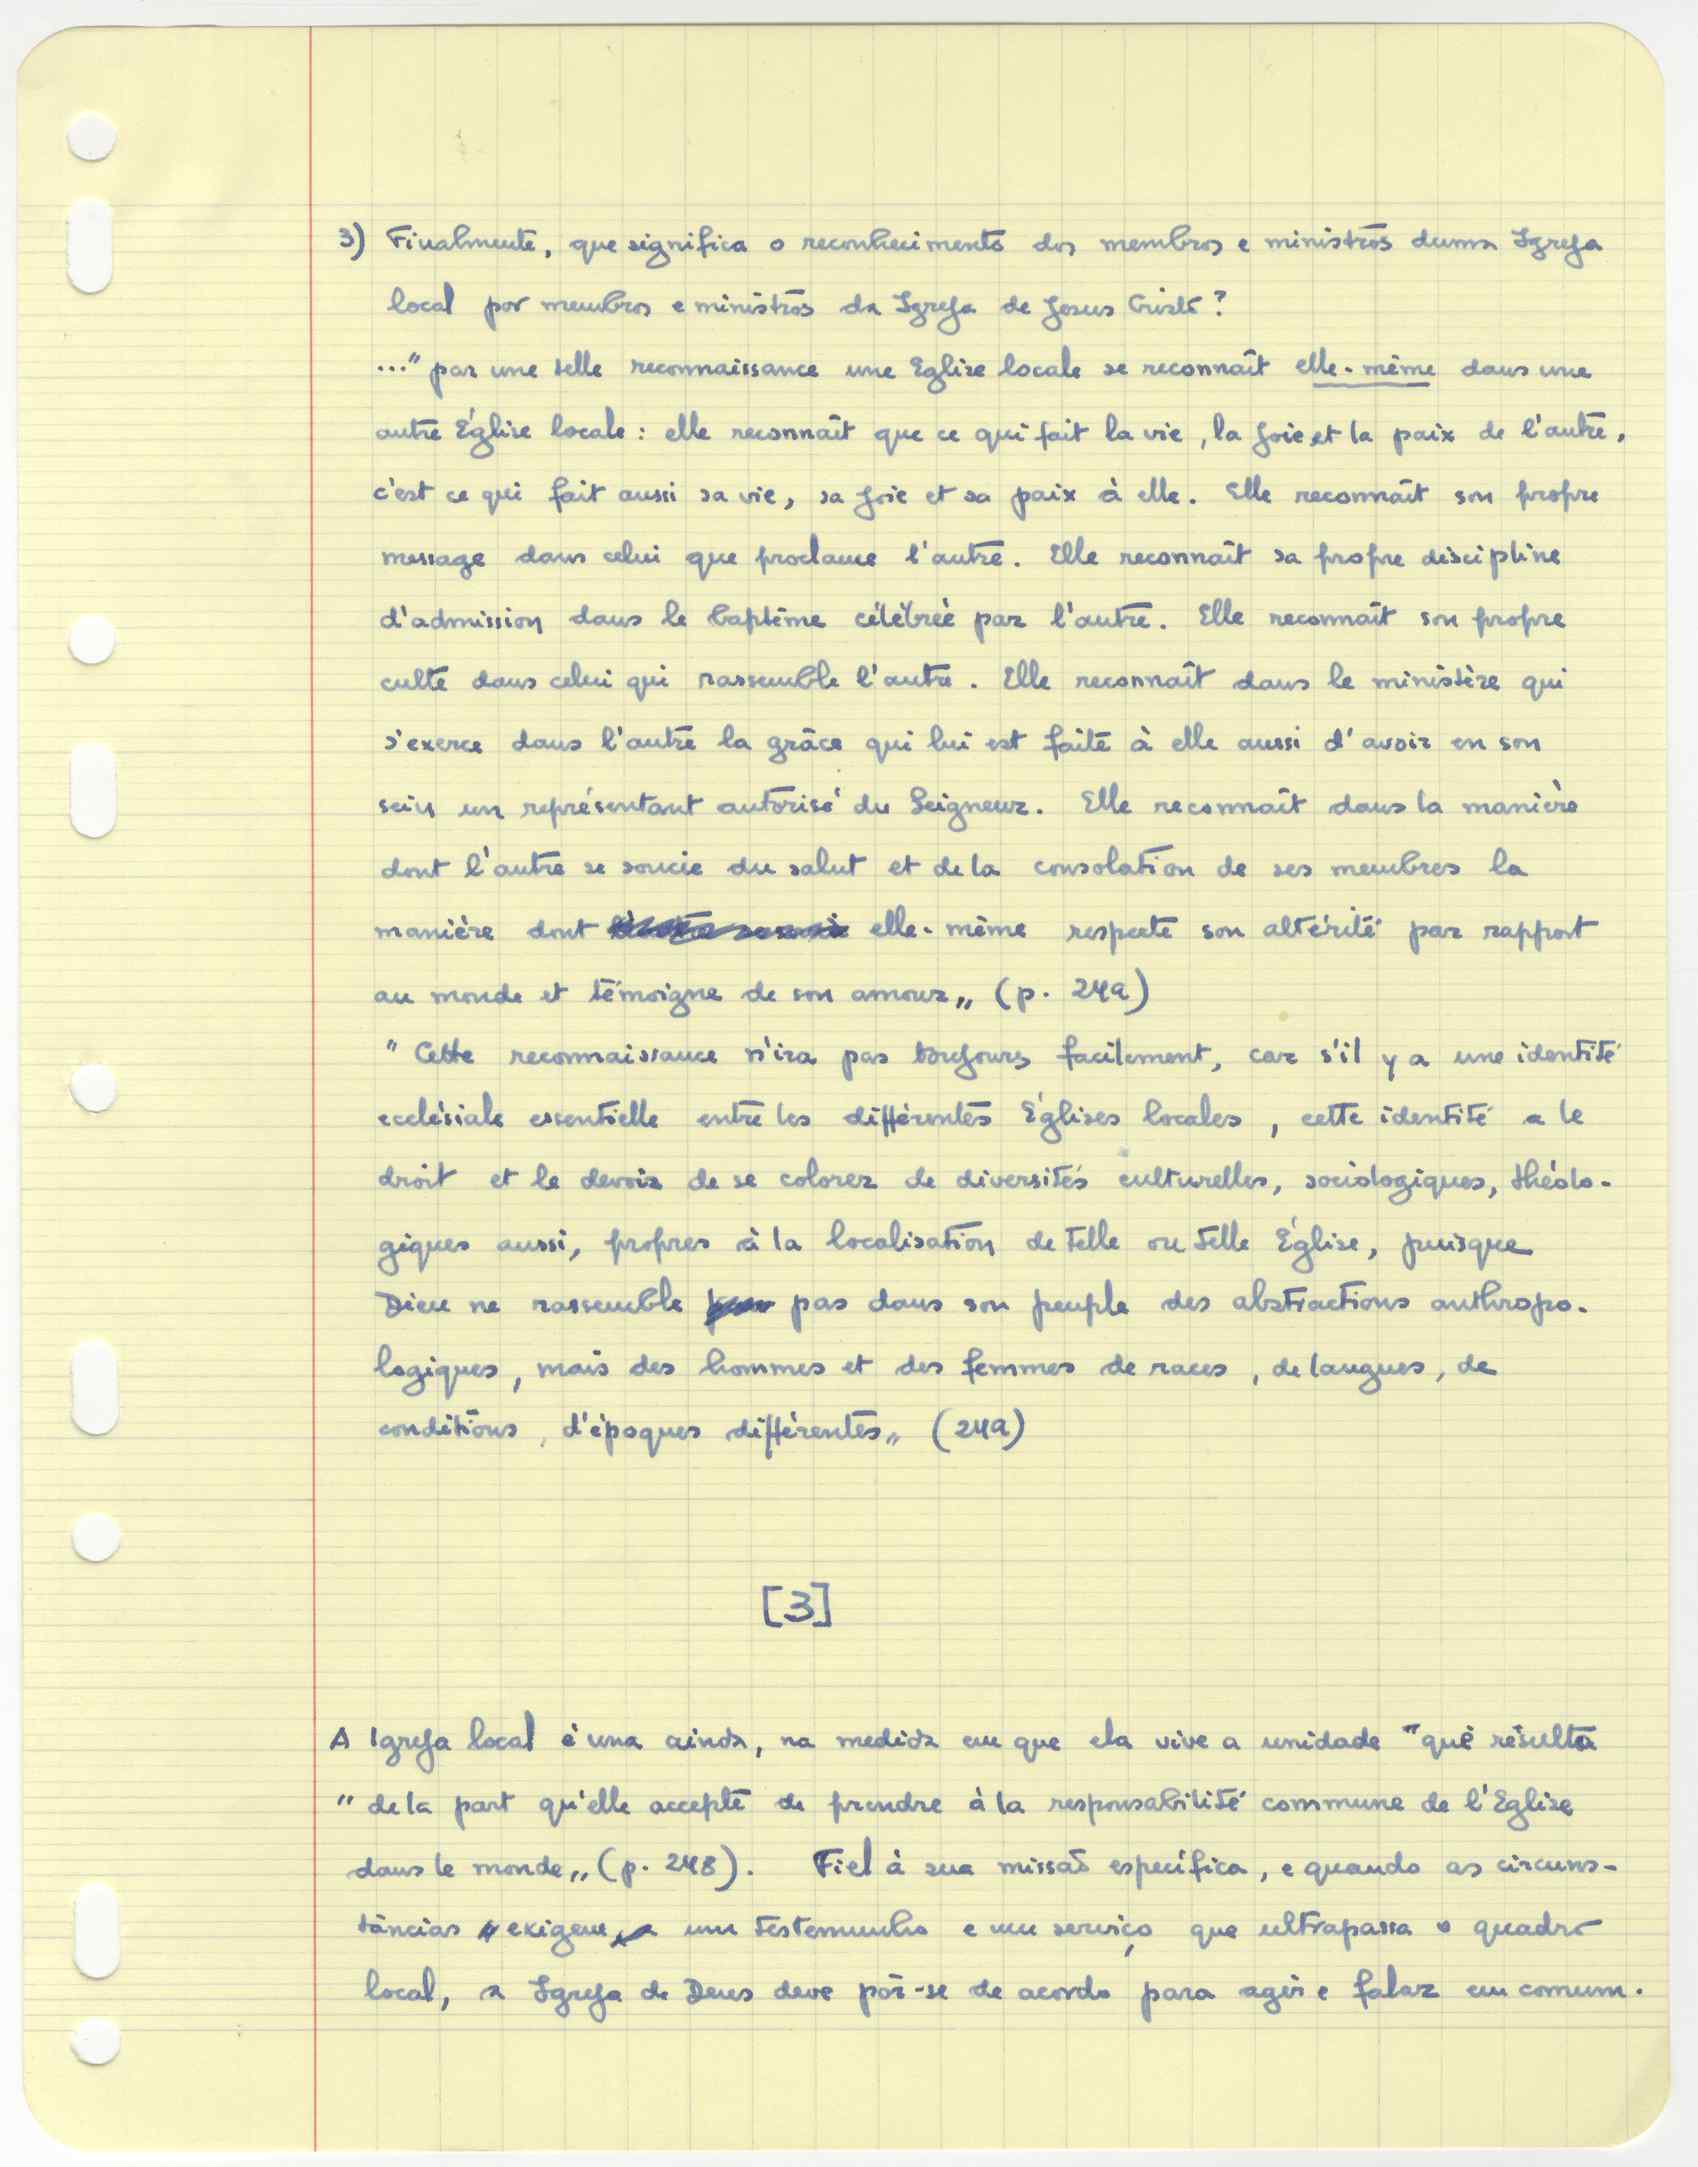 3) Finalmente, que significa o reconhecimento dos membros e ministros duma Igreja
local por membros e ministros da Igreja de Jesus Cristo?
..." par une telle reconnaissance une Eglise locale se reconnaît elle-même dans une
autre Église locale : elle reconnaît que ce qui fait la vie, la joie et la paix de l'autre,
c'est ce qui fait aussi sa vie, sa joie et sa paix à elle. Elle reconnaît son propre
message dans celui que proclame l'autre. Elle reconnaît sa propre discipline
d'admission dans le baptême célébrée par l'autre. Elle reconnaît son propre
culte dans celui qui rassemble l'autre. Elle reconnaît dans le ministère qui
s'exerce dans l'autre la grâce qui lui est faite à elle aussi d'avoir en son
sein un représentant autorisé du Seigneur. Elle reconnaît dans la manière
dont l'autre se soucie du salut et de la consolation de ses membres la
manière dont elle-même respecte son altérité par rapport
au monde et témoigne de son amour„ (p. 249)
" Cette reconnaissance n'ira pas toujours facilement, car s'il y a une identité
ecclésiale essentielle entre les différentes Églises locales, cette identité a le
droit et le devoir de se colorer de diversités culturelles, sociologiques, théolo-
giques aussi, propres à la localisation de telle ou telle Église, puisque
Dieu ne rassemble pas dans son peuple des abstractions anthropo-
logiques, mais des hommes et des femmes de races, de langues, de
conditions, d'époques différentes„ (249)
[3]
A Igreja local é una ainda, na medida em que ela vive a unidade "què résulte
" de la part qu'elle accepte de prendre à la responsabilité commune de l'Eglise
dans le monde„ (p. 248). Fiel à sua missão específica, e quando as circuns-
tâncias exigem um testemunho e um serviço que ultrapassa o quadro
local, a Igreja de Deus deve pôr-se de acordo para agir e falar em comum.